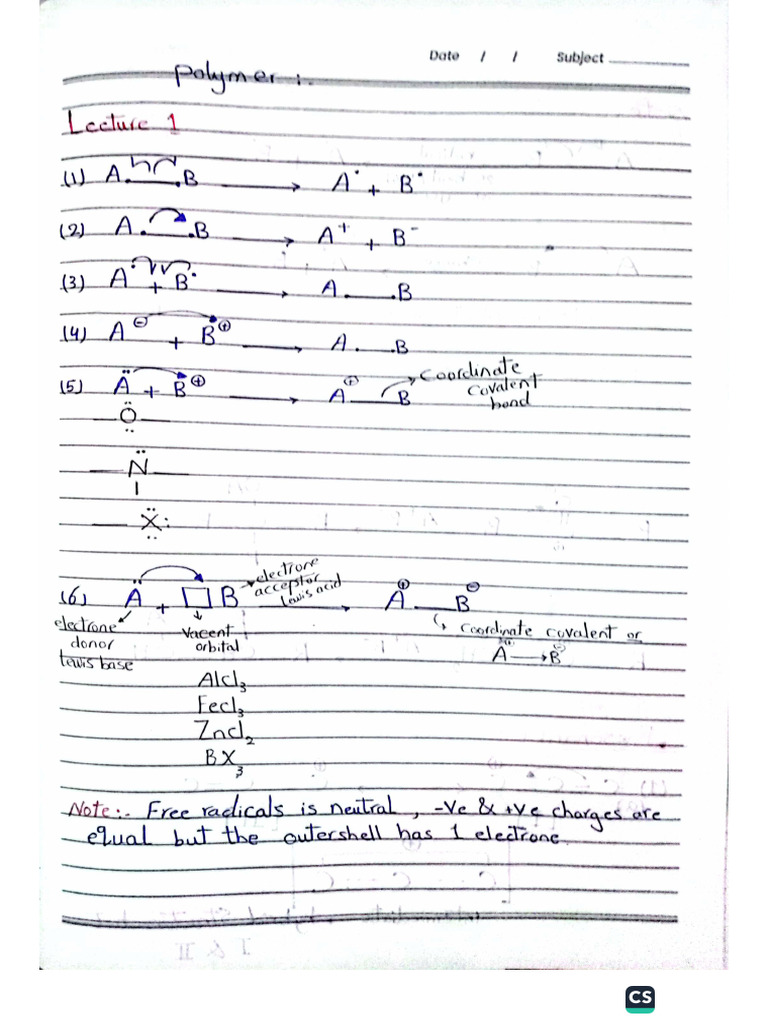 Date / / Subject
Polymer :-
Lecture 1
(1) A. .B → A• + B•
(2) A. .B → A⁺ + B⁻
(3) A• + B• → A. .B
(4) A⊖ + B⊕ → A. .B
(5) Ä + B⊕ → A⊕ B coordinate
covalent
bond
— Ö —
— N̈ —
— Ẍ:
(6) Ä + □ B → A⊕ — B⊖
electrone
acceptor
lewis acid
electrone
donor
lewis base
Vacent
orbital
coordinate covalent or
A → B
Alcl₃
Fecl₃
Zncl₂
BX₃
Note:- Free radicals is neutral, -ve & +ve charges are
equal but the outershell has 1 electrone.
CS